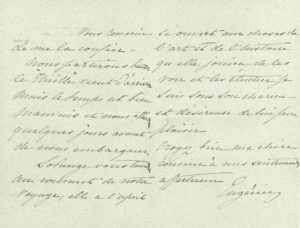 Vous remercie
de me la confier —
Nous partirons
le Thistle vient d'arriver
mais le temps est bien
mauvais et nous
quelques jours avant
de nous embarquer,
Solange vous tiendra
au courant de notre
voyage; elle a l'esprit
si ouvert aux choses de
l'art et de l'histoire
qu'elle jouira de les
voir et les étudier. Je
suis sous son charme
et désireuse de lui faire
plaisir
Croyez bien ma chère
à mes sentiments
affectueux
Eugénie